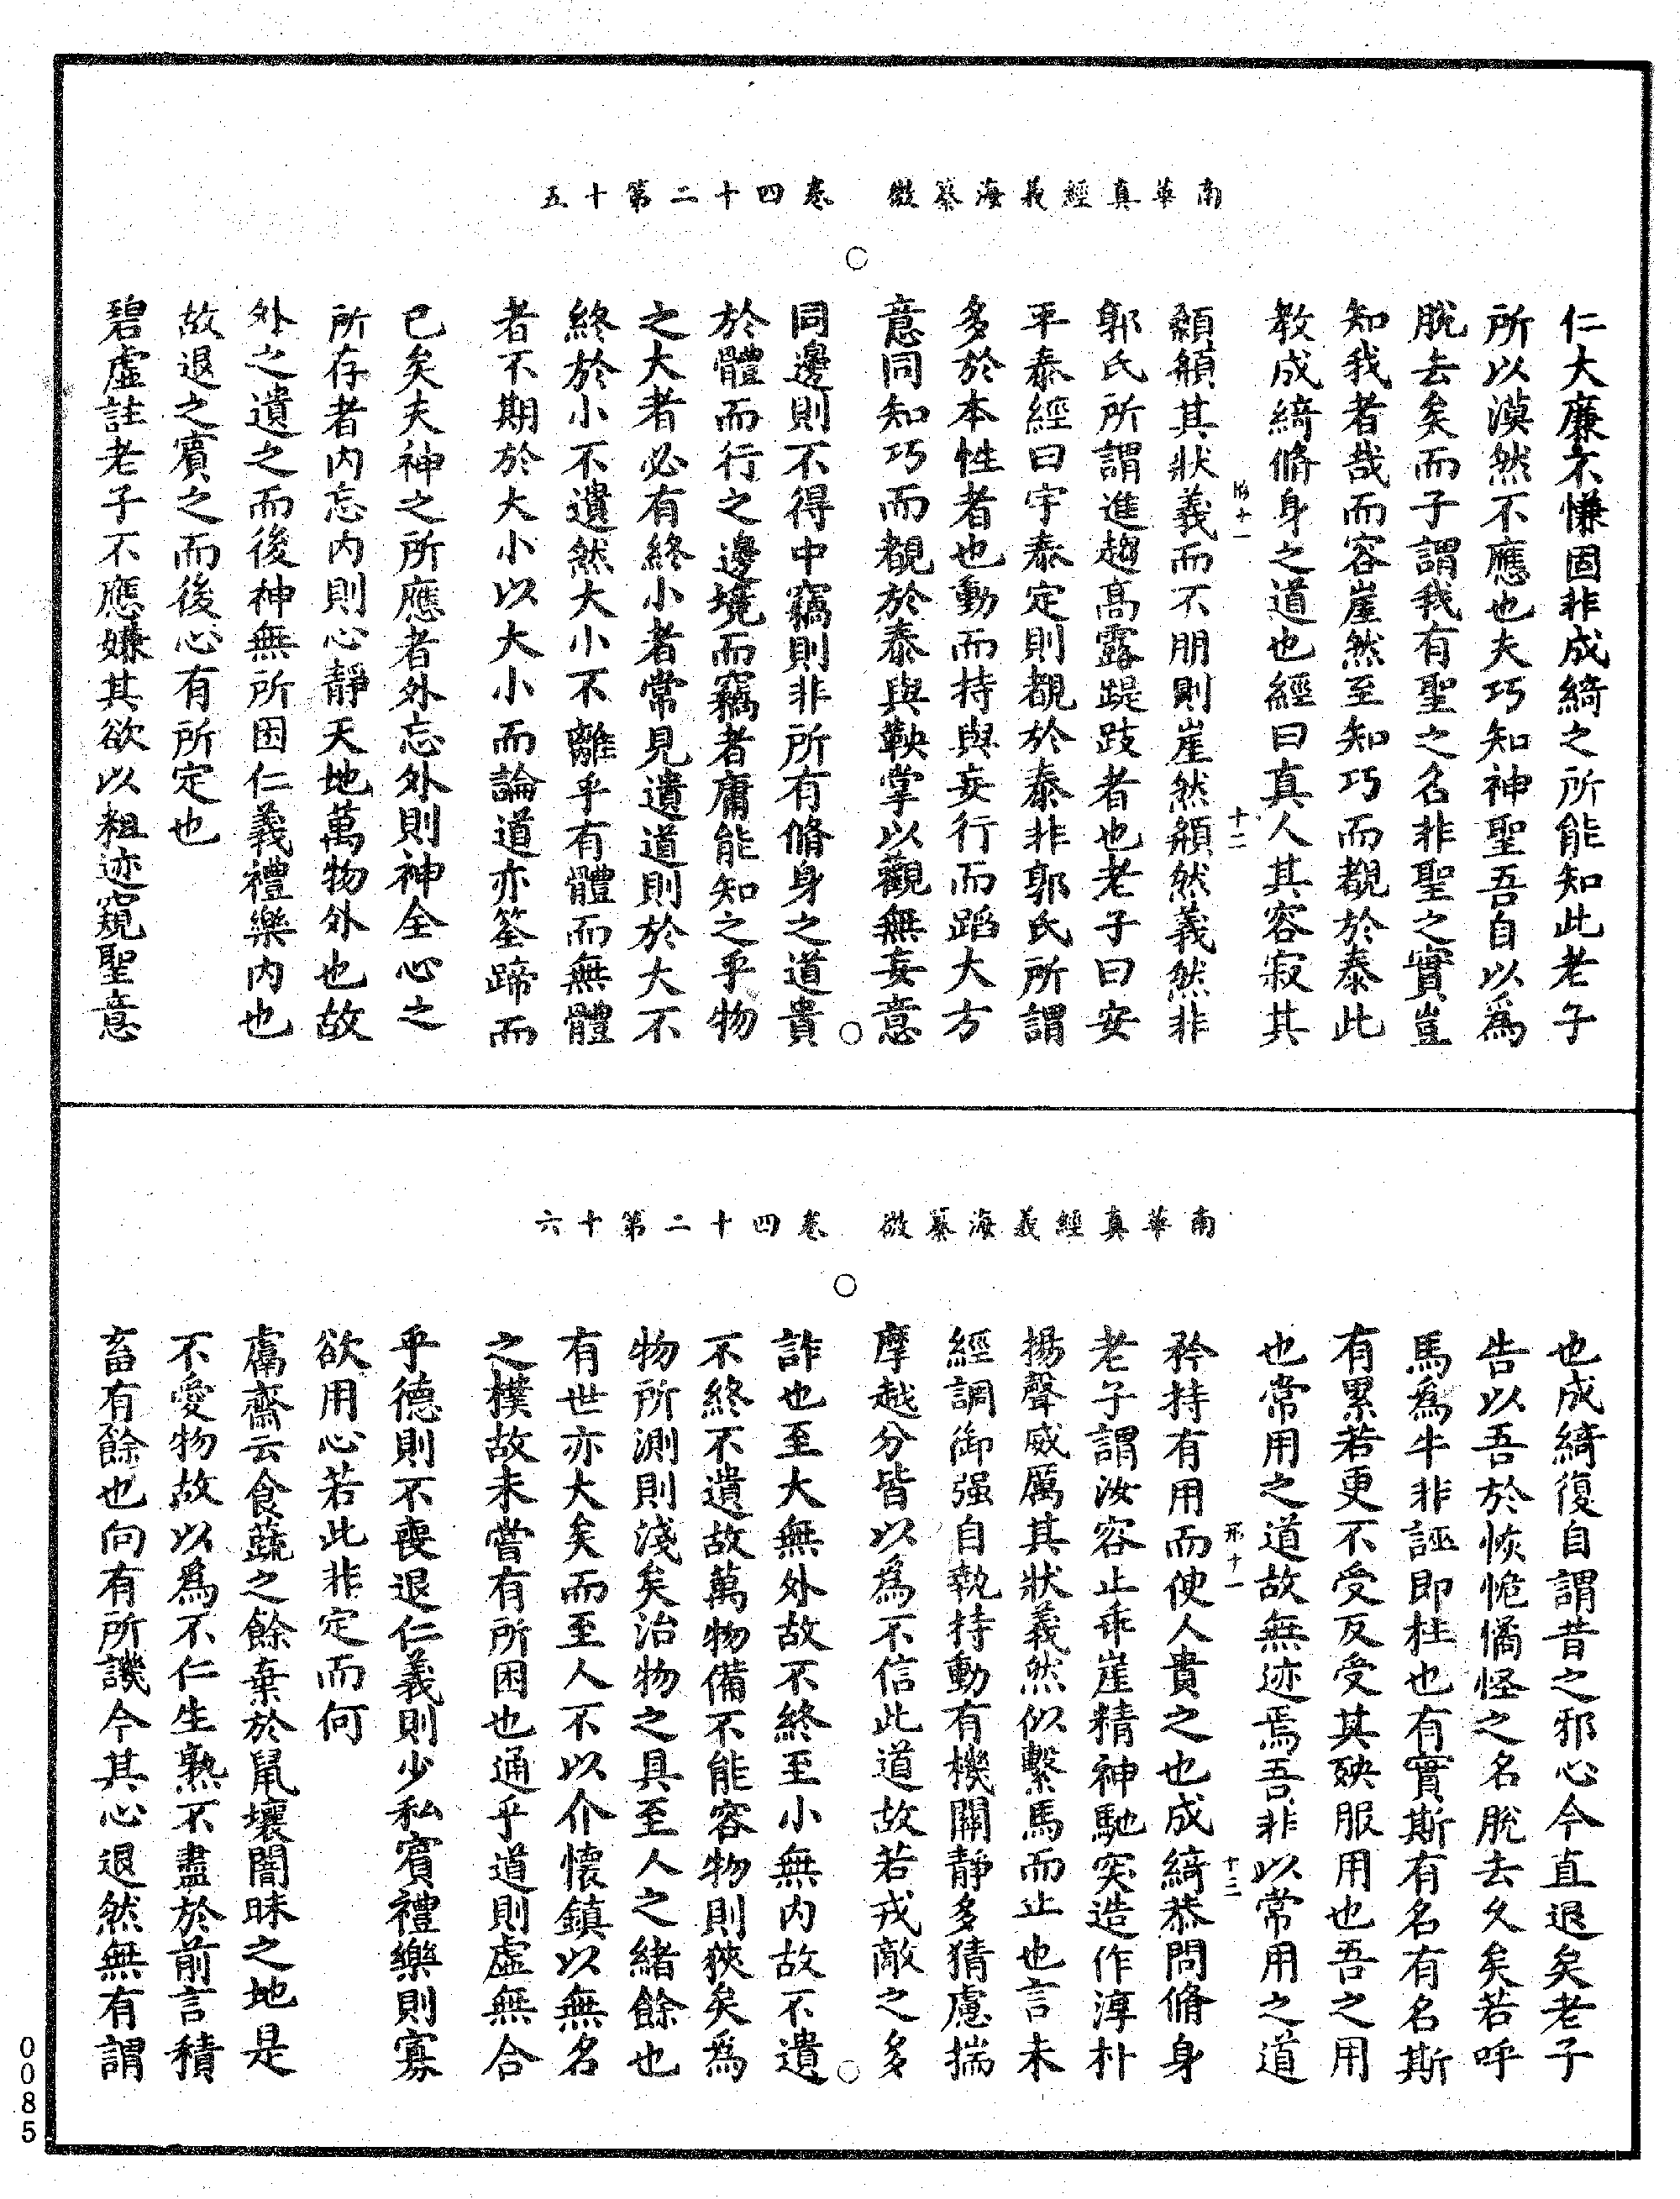 南華真經義海纂微　卷四十二第十五
仁大廉不慊固非成綺之所能知此老子
所以漠然不應也夫巧知神聖吾自以爲
脫去矣而子謂我有聖之名非聖之實豈
知我者哉而容崖然至知巧而覩於泰此
教成綺脩身之道也經曰真人其容寂其
十二
顙頯其狀義而不朋則崖然頯然義然非
郭氏所謂進趨高露踶跂者也老子曰安
平泰經曰宇泰定則覩於泰非郭氏所謂
多於本性者也動而持與妄行而蹈大方
意同知巧而覩於泰與鞅掌以觀無妄意
同邊則不得中竊則非所有脩身之道貴
於體而行之邊境而竊者庸能知之乎物
之大者必有終小者常見遺道則於大不
終於小不遺然大小不離乎有體而無體
者不期於大小以大小而論道亦筌蹄而
已矣夫神之所應者外忘外則神全心之
所存者內忘內則心靜天地萬物外也故
外之遺之而後神無所困仁義禮樂內也
故退之賓之而後心有所定也
碧虛註老子不應嫌其欲以粗迹窺聖意
南華真經義海纂微　卷四十二第十六
也成綺復自謂昔之邪心今直退矣老子
告以吾於恢恑憰怪之名脫去久矣若呼
馬爲牛非誣即枉也有實斯有名有名斯
有累若更不受反受其殃服用也吾之用
也常用之道故無迹焉吾非以常用之道
十三
矜持有用而使人貴之也成綺恭問脩身
老子謂汝容止乖崖精神馳突造作淳朴
揚聲威厲其狀義然似繫馬而止也言未
經調御强自執持動有機關靜多猜慮揣
摩越分皆以爲不信此道故若戎敵之多
詐也至大無外故不終至小無內故不遺
不終不遺故萬物備不能容物則狹矣爲
物所測則淺矣治物之具至人之緒餘也
有世亦大矣而至人不以介懷鎮以無名
之樸故未嘗有所困也通乎道則虛無合
乎德則不喪退仁義則少私賓禮樂則寡
欲用心若此非定而何
鬳齋云食蔬之餘棄於鼠壤闇昧之地是
不愛物故以爲不仁生熟不盡於前言積
畜有餘也向有所譏今其心退然無有謂
0085